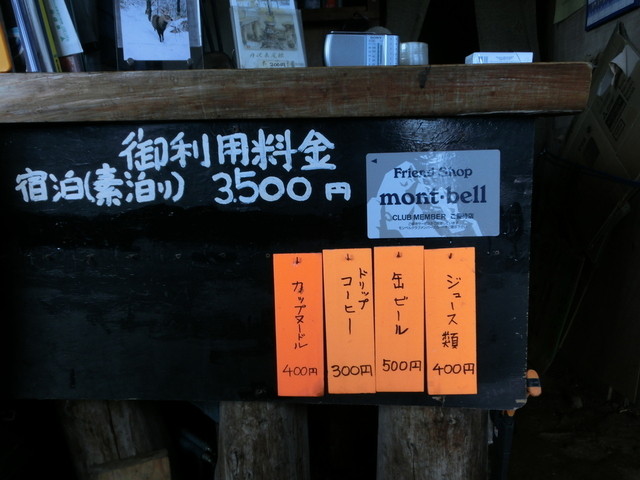 御利用料金
宿泊(素泊り) 3,500円
Friend Shop
mont・bell
CLUB MEMBER ご優待店
カップヌードル
400円
ドリップ
コーヒー
300円
缶ビール
500円
ジュース類
400円